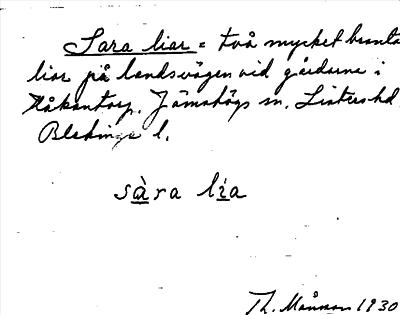 Sara liar = två mycket branta
liar på landsvägen vid gårdarne i
Håkantorp. Jämshögs sn. Listers hd.
Blekinge l.
sàra lia
Th. Månsson 1930